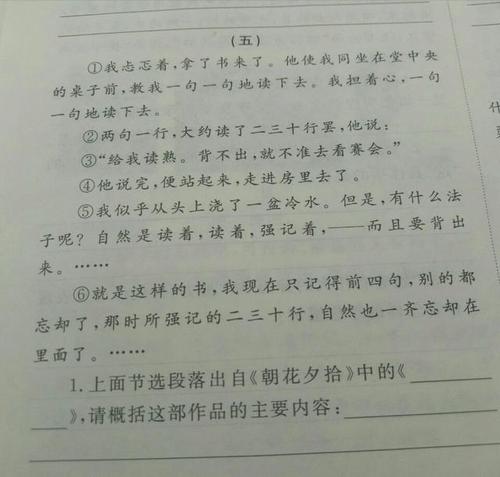 (五)
①我忐忑着,拿了书来了。他使我同坐在堂中央
的桌子前,教我一句一句地读下去。我担着心,一句
一句地读下去。
②两句一行,大约读了二三十行罢,他说:
③“给我读熟。背不出,就不准去看赛会。”
④他说完,便站起来,走进房里去了。
⑤我似乎从头上浇了一盆冷水。但是,有什么法
子呢?自然是读着,读着,强记着,——而且要背出
来。……
⑥就是这样的书,我现在只记得前四句,别的都
忘却了,那时所强记的二三十行,自然也一齐忘却在
里面了。……
1.上面节选段落出自《朝花夕拾》中的《________
____》,请概括这部作品的主要内容:________
什